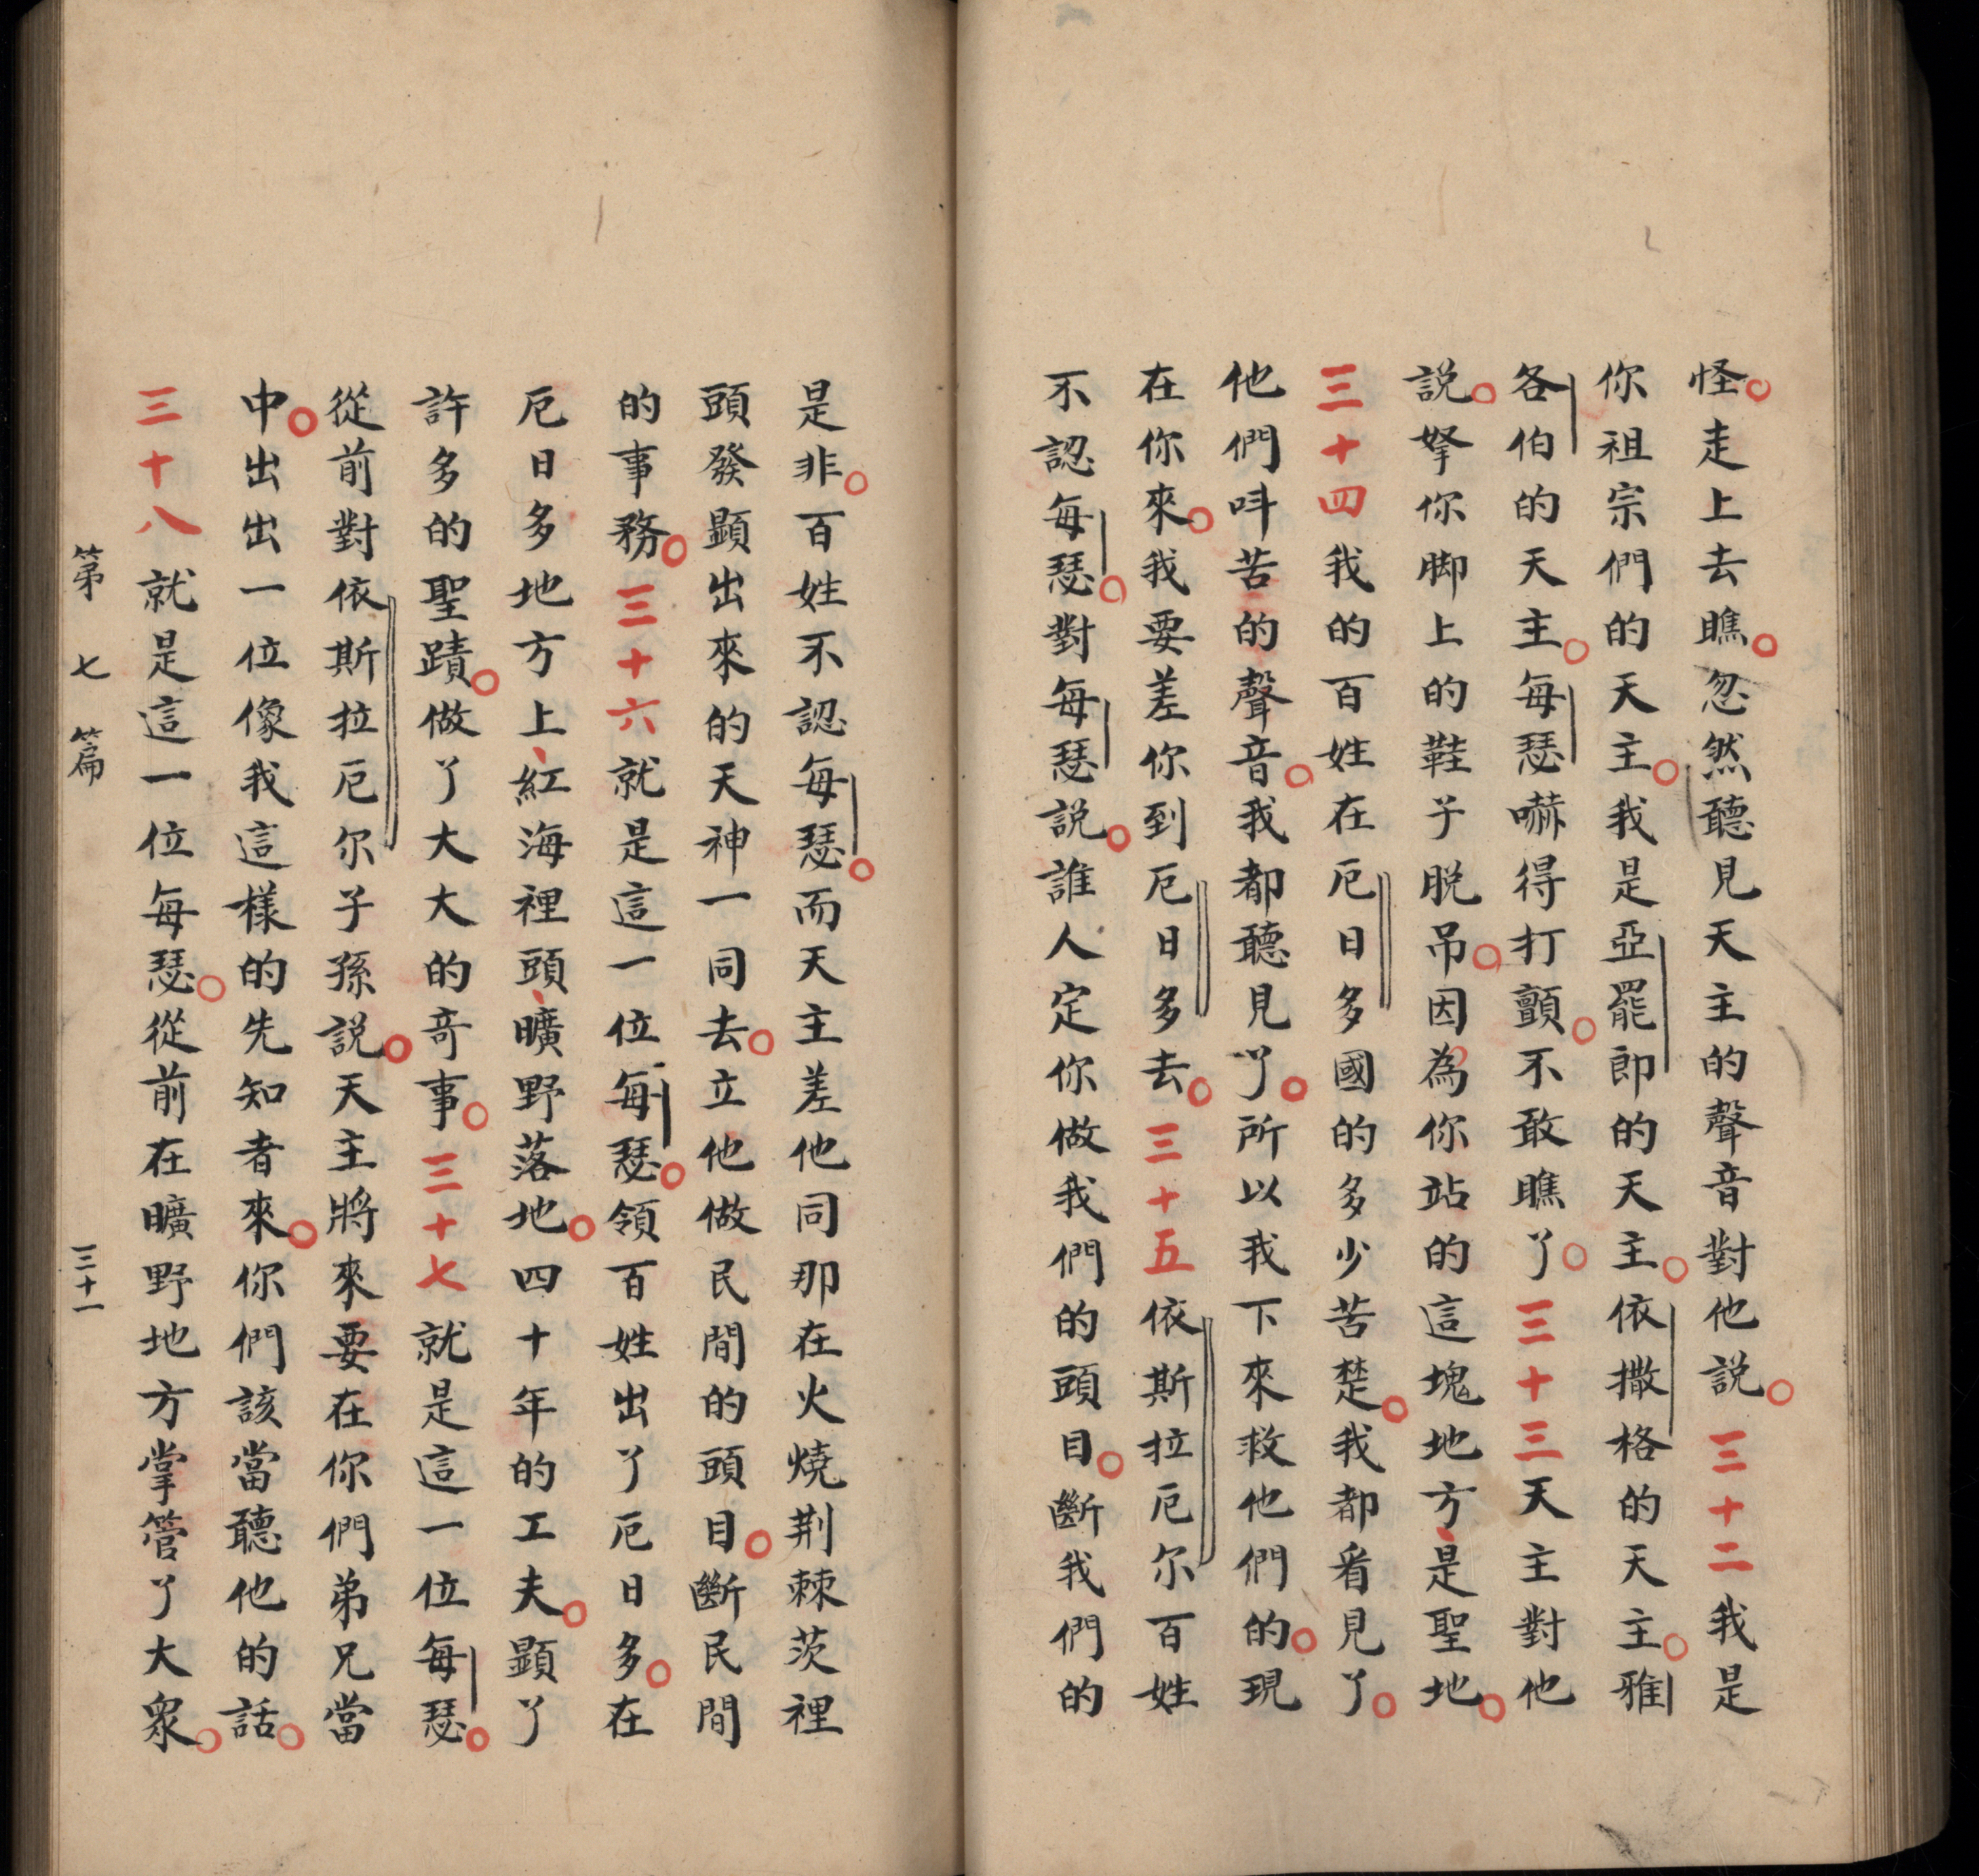 怪。走上去瞧。忽然聽見天主的聲音對他説。三十二我是
你祖宗們的天主。我是亞罷郎的天主。依撒格的天主。雅
各伯的天主。每瑟嚇得打顫。不敢瞧了。三十三天主對他
説。拏你脚上的鞋子脱吊。因為你站的這塊地方、是聖地。
三十四我的百姓在厄日多國的多少苦楚。我都看見了。
他們呌苦的聲音。我都聽見了。所以我下來救他們的。現
在你來。我要差你到厄日多去。三十五依斯拉厄尔百姓
不認每瑟。對每瑟説。誰人定你做我們的頭目。斷我們的
是非。百姓不認每瑟。而天主差他同那在火燒荆棘茨裡
頭發顯出來的天神一同去。立他做民間的頭目。斷民間
的事務。三十六就是這一位每瑟。領百姓出了厄日多。在
厄日多地方上、紅海裡頭、曠野落地。四十年的工夫。顕了
許多的聖蹟。做了大大的竒事。三十七就是這一位每瑟。
從前對依斯拉厄尔子孫説。天主將來要在你們弟兄當
中。出出一位像我這樣的先知者來。你們該當聽他的話。
三十八就是這一位每瑟。從前在曠野地方掌管了大衆。
第七篇 三十一